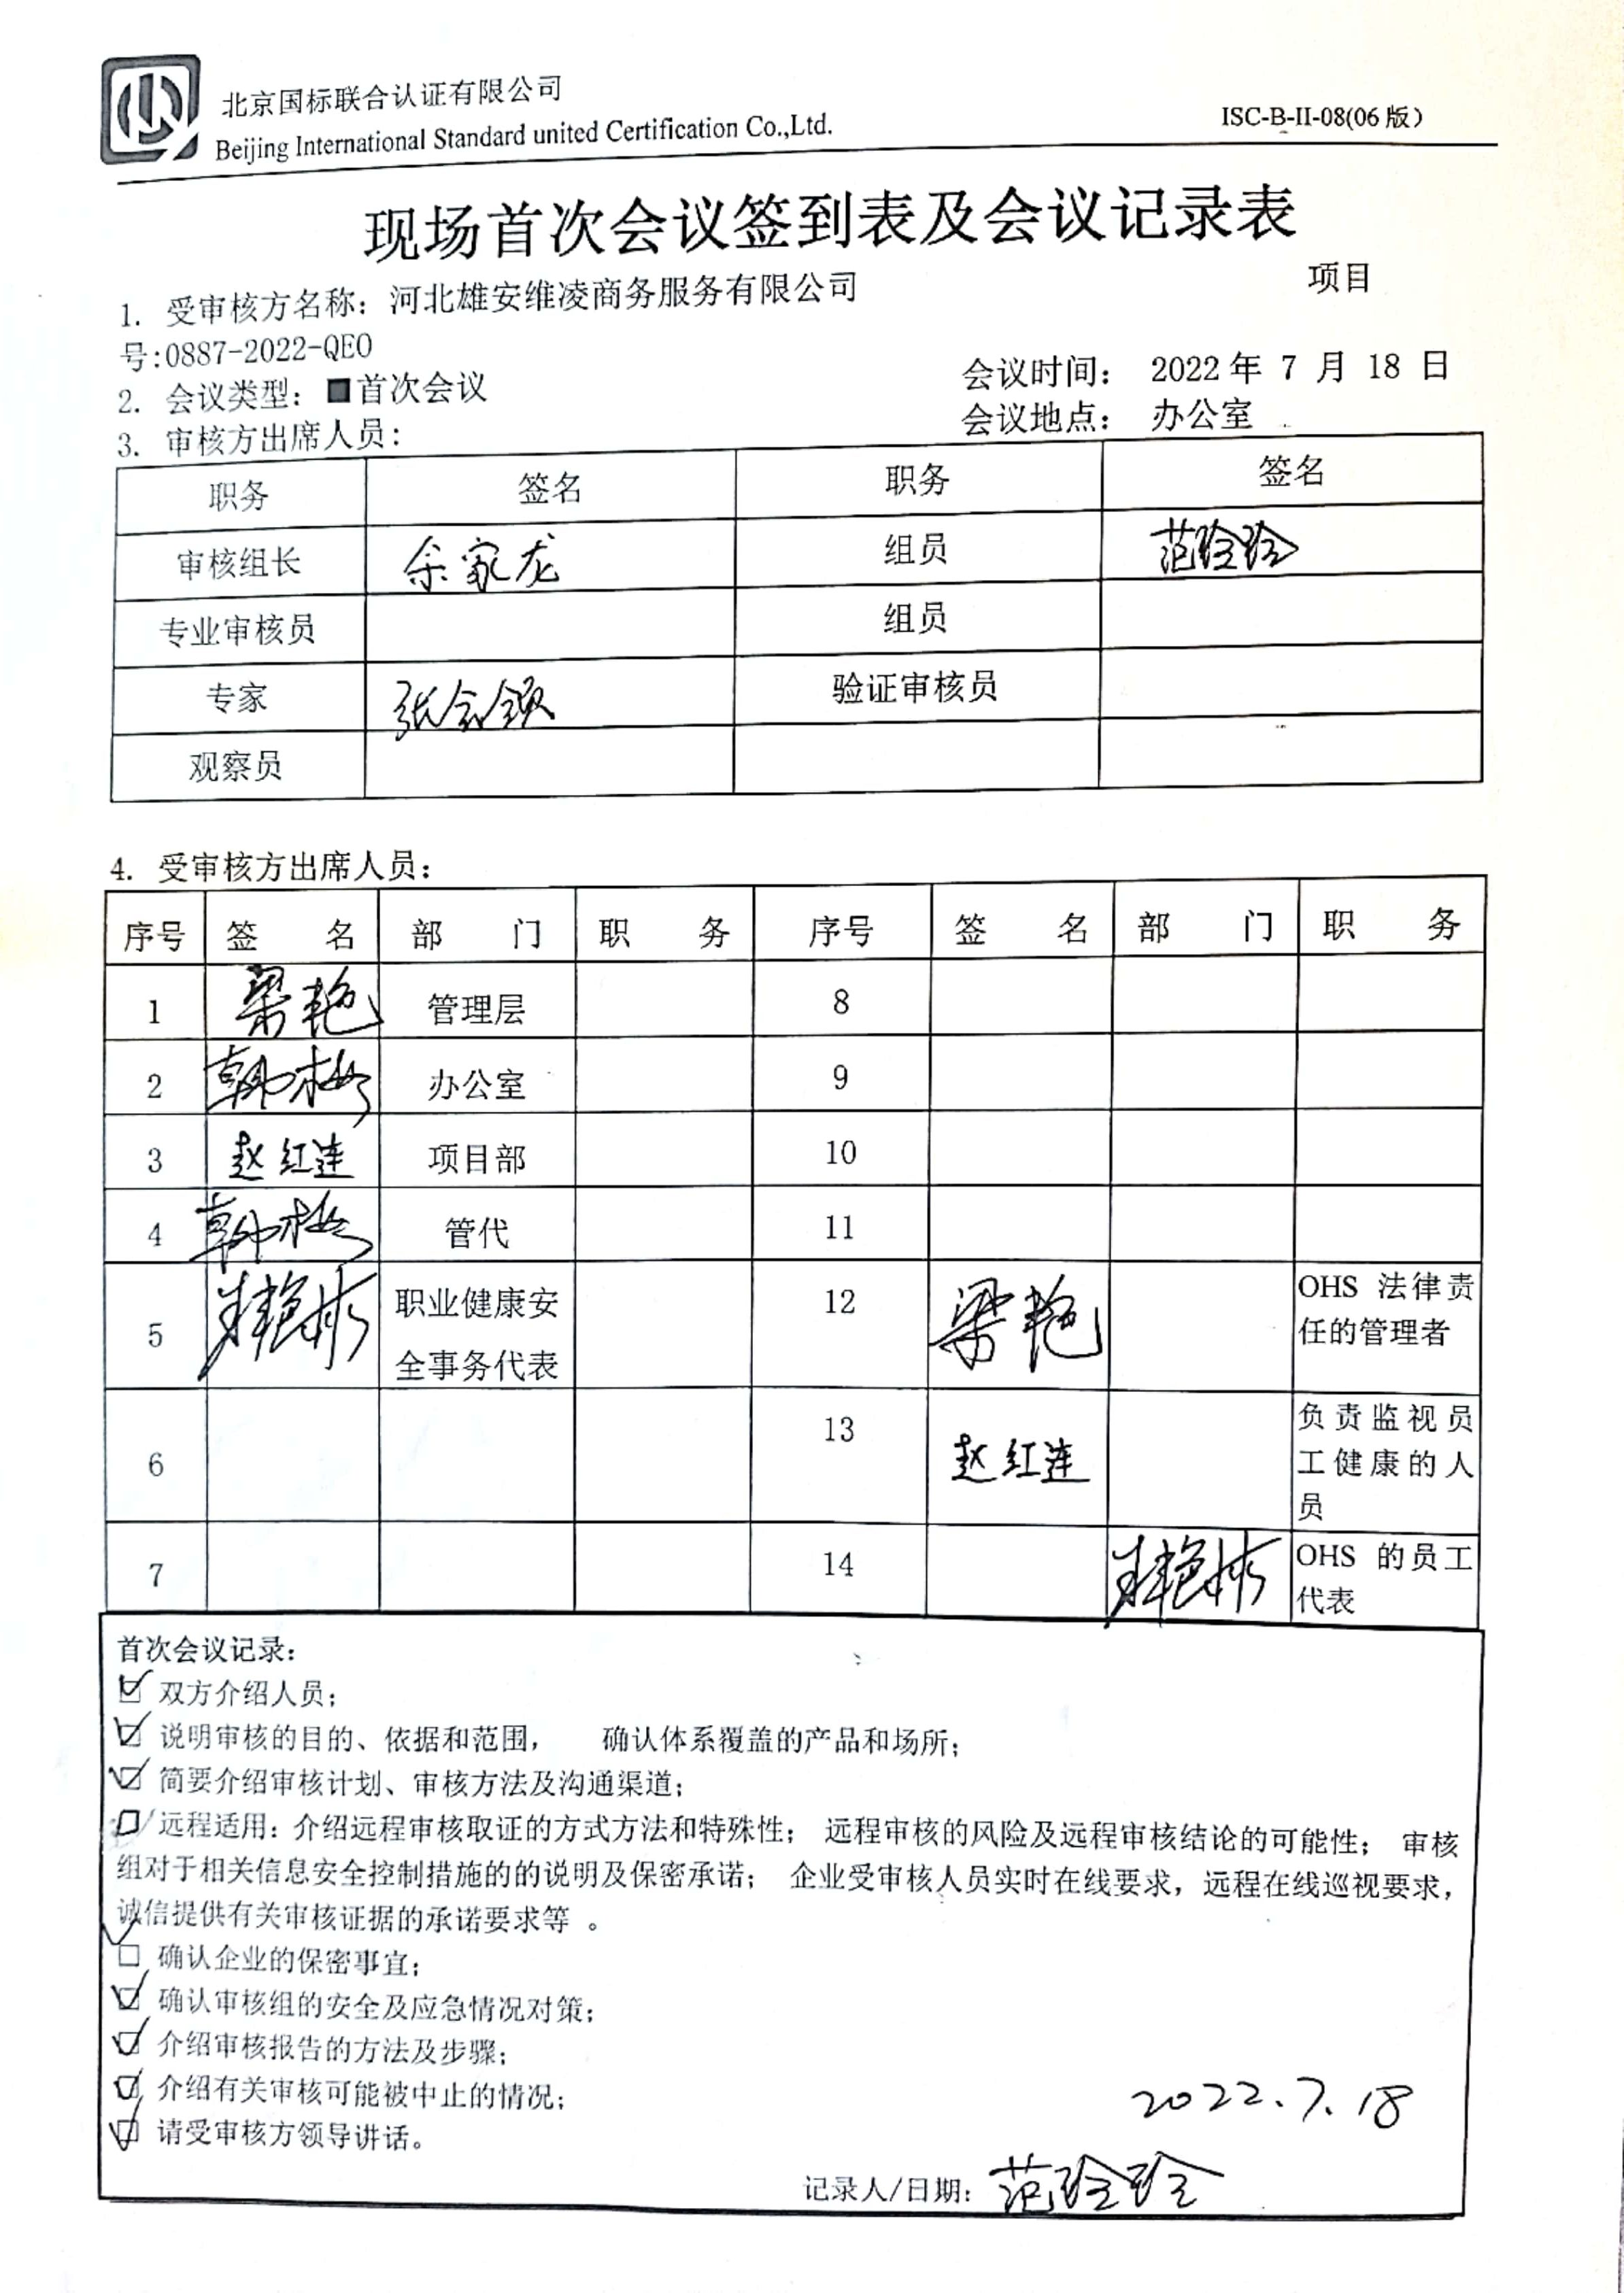 北京国标联合认证有限公司
Beijing International Standard united Certification Co.,Ltd.
ISC-B-II-08(06版)
现场首次会议签到表及会议记录表
1. 受审核方名称：河北雄安维凌商务服务有限公司 项目
号:0887-2022-QEO
2. 会议类型：■首次会议 会议时间： 2022年 7 月 18 日
3. 审核方出席人员： 会议地点： 办公室
职务 签名 职务 签名
审核组长 余家龙 组员 范玲玲
专业审核员 组员
专家 张会领 验证审核员
观察员
4. 受审核方出席人员：
序号 签 名 部 门 职 务 序号 签 名 部 门 职 务
1 梁艳 管理层 8
2 韩梅 办公室 9
3 赵红连 项目部 10
4 韩梅 管代 11
5 职业健康安 12 梁艳 OHS 法律责
全事务代表 任的管理者
6 13 赵红连 负责监视员
工健康的人
员
7 14 OHS 的员工
代表
首次会议记录：
☑ 双方介绍人员；
☑ 说明审核的目的、依据和范围， 确认体系覆盖的产品和场所；
☑ 简要介绍审核计划、审核方法及沟通渠道；
□/远程适用：介绍远程审核取证的方式方法和特殊性； 远程审核的风险及远程审核结论的可能性； 审核
组对于相关信息安全控制措施的的说明及保密承诺； 企业受审核人员实时在线要求，远程在线巡视要求，
诚信提供有关审核证据的承诺要求等 。
☑ 确认企业的保密事宜；
☑ 确认审核组的安全及应急情况对策；
☑ 介绍审核报告的方法及步骤；
☑ 介绍有关审核可能被中止的情况；
☑ 请受审核方领导讲话。
2022.7.18
记录人/日期：范玲玲